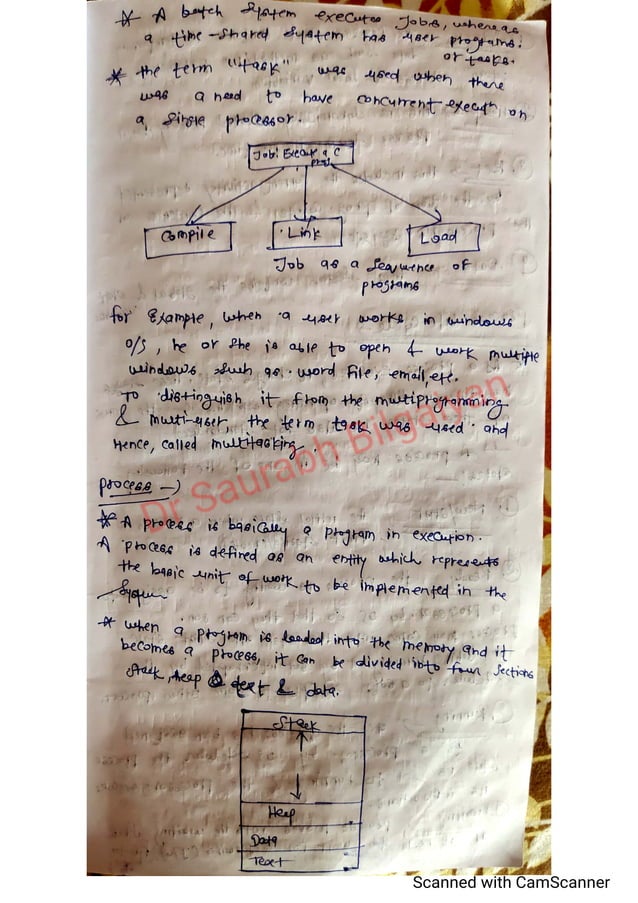 * A batch system executes Jobs, whereas
a time-shared system has user programs.
or tasks.
* the term "task" was used when there
was a need to have concurrent execun on
a single processor.
Job: Execute a C
prog
Compile
Link
Load
Job as a sequence of
programs
for Example, when a user works in windows
O/S, he or she is able to open & work multiple
windows such as word file, email, etc.
To distinguish it from the multiprogramming
& multi-user, the term task was used and
Hence, called multitasking.
Dr Saurabh Bilgaiyan
process →
* A process is basically a program in execution.
A process is defined as an entity which represents
the basic unit of work to be implemented in the
System
* when a program is loaded into the memory and it
becomes a process, it can be divided into four sections
stack, heap text & data.
Stack
Heap
Data
Text
Scanned with CamScanner